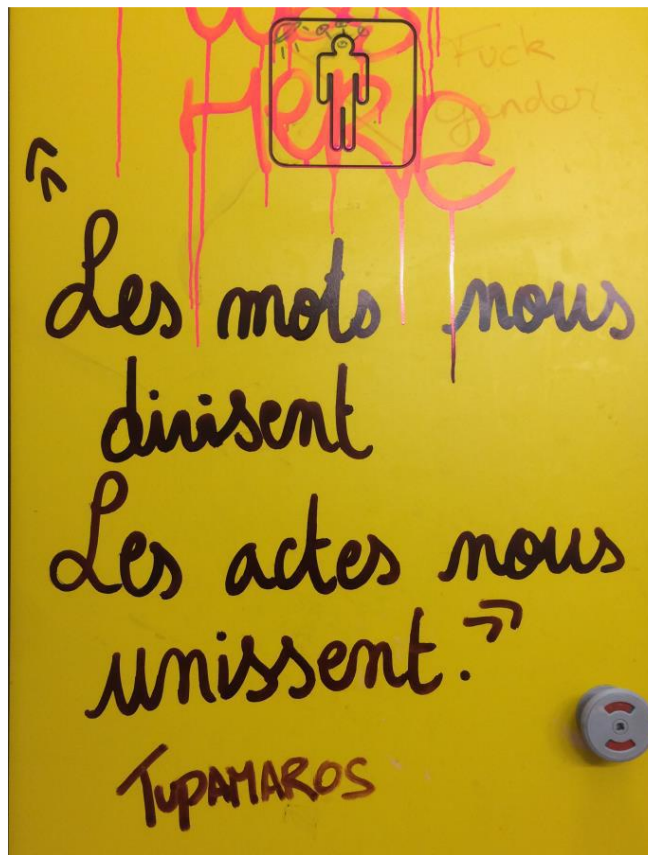 HERE
Fuck
gender
« Les mots nous
divisent
Les actes nous
unissent. »
TUPAMAROS